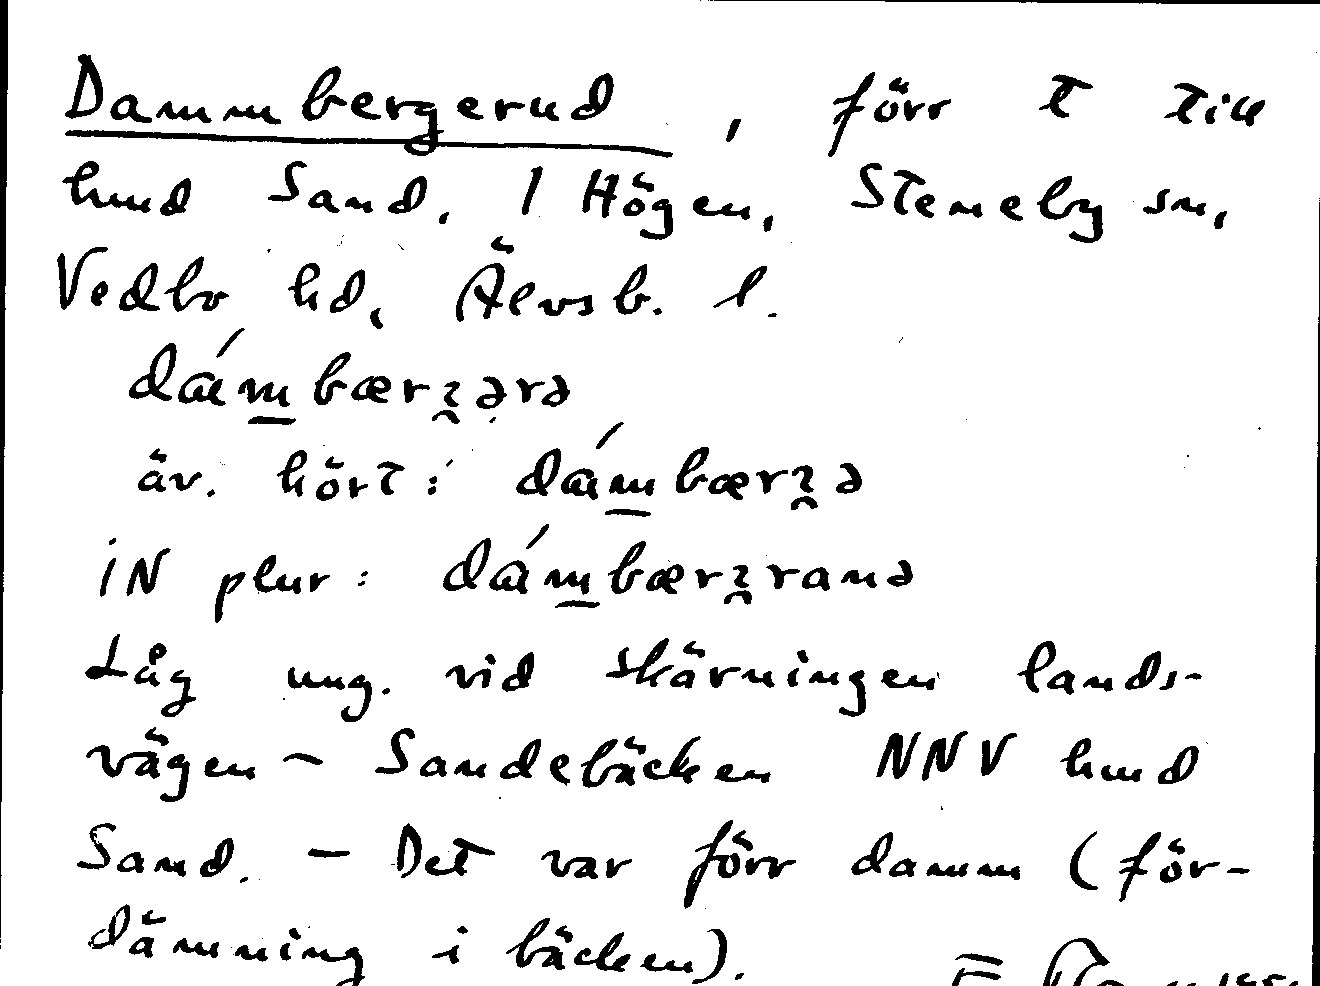 Dammbergerud, förr t till
hmd Sand, i Högen, Steneby sn,
Vedbo hd, Älvsb. l.
dám̲bærʒ̯ərə
äv. hört: dám̲bærʒ̯ə
iN plur: dám̲bærʒ̯ranə
Låg ung. vid skärningen lands-
vägen - Sandebäcken NNV hmd
Sand. - Det var förr damm (för-
dämning i bäcken).